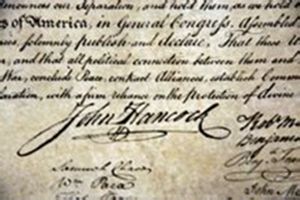 denounces our Separation, and hold them, as we hold
s of America, in General Congress, Assembled
ies, solemnly publish and declare, That these
and that all political connection between them and
War, conclude Peace, contract Alliances, establish Comm
laration, with a firm reliance on the protection of divine
John Hancock
Rob M
Benjamin
Samuel Chase
Wm Paca